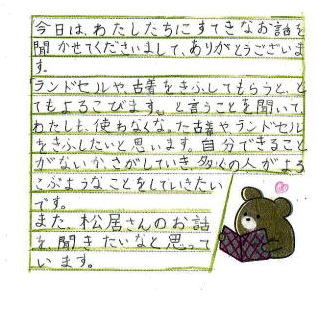 今日は、わたしたちにすてきなお話を
聞かせてくださいまして、ありがとうございま
す。
「ランドセルや、古着をきふしてもらうと、と
てもよろこびます。」と言うことを聞いて、
わたしも、使わなくなった古着やランドセル
をきふしたいと思います。自分でできること
がないか、さがしていき、多くの人がよろ
こぶようなことをしていきたい
です。
また、松居さんのお話
を、聞きたいなと思って
います。